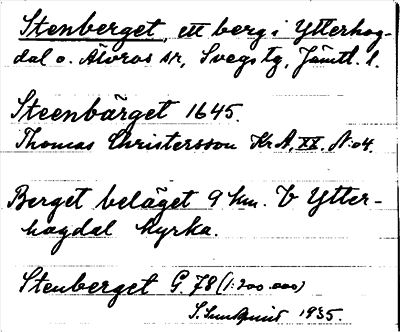 Stenberget, ett berg i Ytterhog-
dal o. Älvros sr, Svegs tg, Jämtl. l.
Steenbärget 1645.
Thomas Christersson Kr A, XX, N:o4.
Berget beläget 9 km. V Ytter-
hogdal kyrka.
Stenberget G. 78 (1:200.000)
1935.